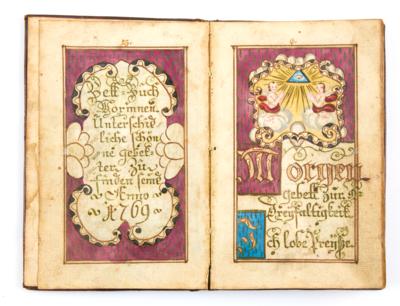 Bett Buch
Worinnen
Unterschid
liche schön
ne gebet
ter zu
finden send
Anno
1769
Morgen
gebett zur
Dreyfaltigkeit.
Ich lobe Preyße